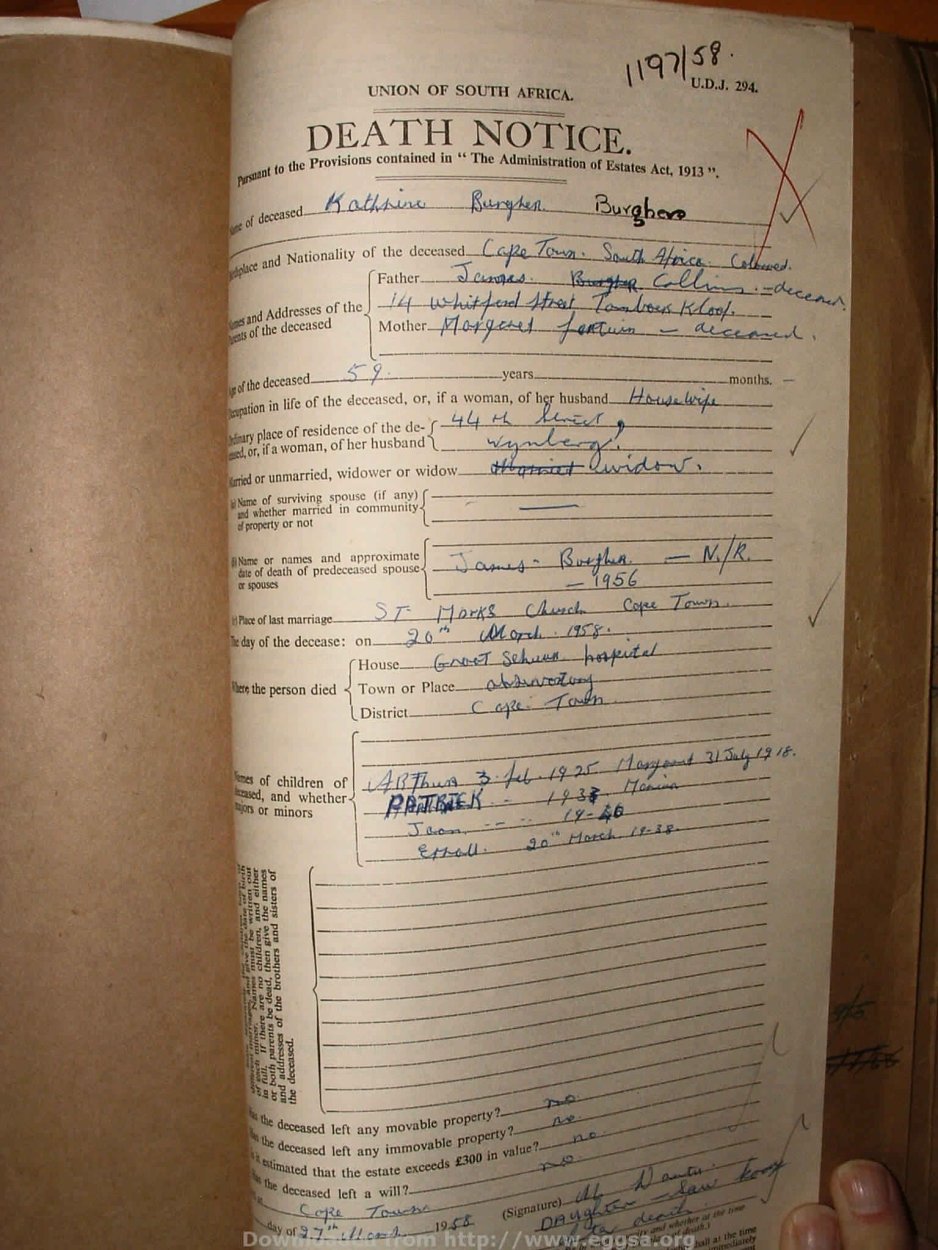 1197/58.
U.D.J. 294.
UNION OF SOUTH AFRICA.
DEATH NOTICE.
Pursuant to the Provisions contained in " The Administration of Estates Act, 1913 ".
of deceased Kathrine Burgher Burghers
and Nationality of the deceased Cape Town. South Africa. Coloured.
and Addresses of the
of the deceased
Father James. Burgher Collins. - deceased.
14 Whitford Street, Tamboers Kloof.
Mother Margaret - deceased.
of the deceased 59 years months. -
in life of the deceased, or, if a woman, of her husband Housewife
place of residence of the de-
or, if a woman, of her husband
44 th Street,
Wynberg.
or unmarried, widower or widow widow.
Name of surviving spouse (if any)
and whether married in community
of property or not
—
Name or names and approximate
date of death of predeceased spouse
or spouses
James - Burgher - N./R.
- 1956
Place of last marriage ST Marks Church Cape Town.
day of the decease: on 20th March. 1958.
the person died
House Groot Schuur hospital
Town or Place observatory
District Cape Town
of children of
and whether
or minors
ARThur 3 feb. 1925. Margaret 31 July 1918.
PATRICK - 193
Jean
Erroll. 20th March 19-38.
of each minor. Names must be written out
in full. If there are no children, and either
or both parents be dead, then give the names
and addresses of the brothers and sisters of
the deceased.
the deceased left any movable property? no.
the deceased left any immovable property? no.
estimated that the estate exceeds £300 in value? no.
the deceased left a will? no.
Cape Town
day of 27th March 1958
(Signature)
DAughter - Saw body
after death.
and whether at the time
death.)
at the time
immediately
Downloaded from http://www.eggsa.org